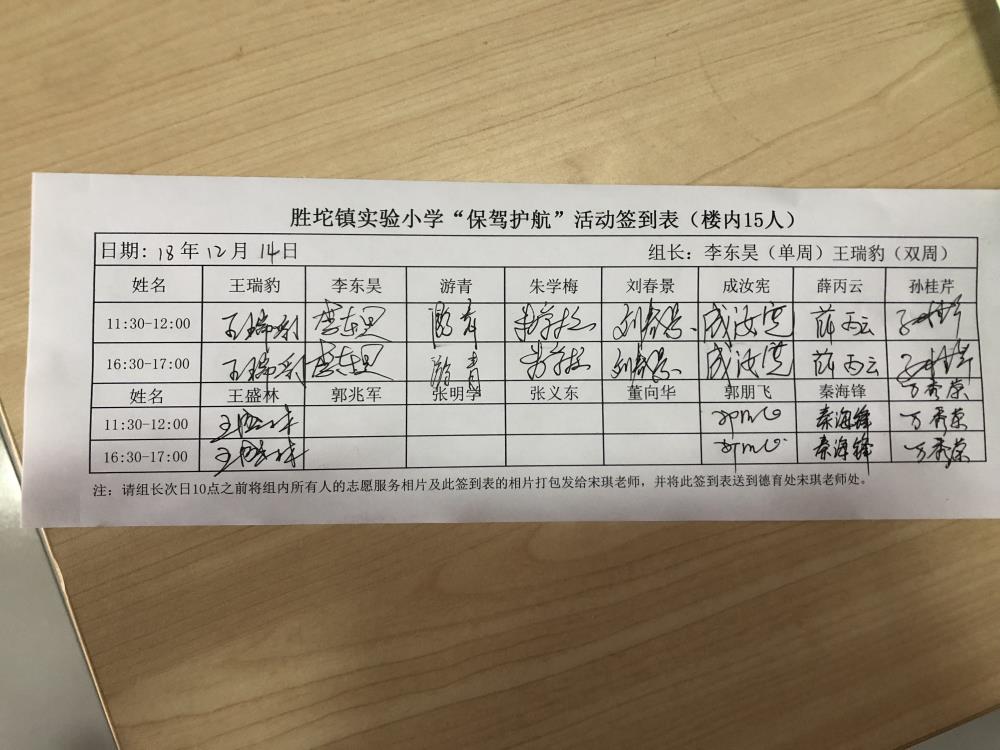 胜坨镇实验小学“保驾护航”活动签到表（楼内15人）
日期: 18 年 12 月 14 日 组长：李东昊（单周）王瑞豹（双周）
姓名 王瑞豹 李东昊 游青 朱学梅 刘春景 成汝宪 薛丙云 孙桂芹
11:30-12:00 王瑞豹 李东昊 游青 朱学梅 刘春景 成汝宪 薛丙云 孙桂芹
16:30-17:00 王瑞豹 李东昊 游青 朱学梅 刘春景 成汝宪 薛丙云 孙桂芹
姓名 王盛林 郭兆军 张明学 张义东 董向华 郭朋飞 秦海锋 万秀荣
11:30-12:00 王盛林 秦海锋 万秀荣
16:30-17:00 王盛林 秦海锋 万秀荣
注：请组长次日10点之前将组内所有人的志愿服务相片及此签到表的相片打包发给宋琪老师，并将此签到表送到德育处宋琪老师处。